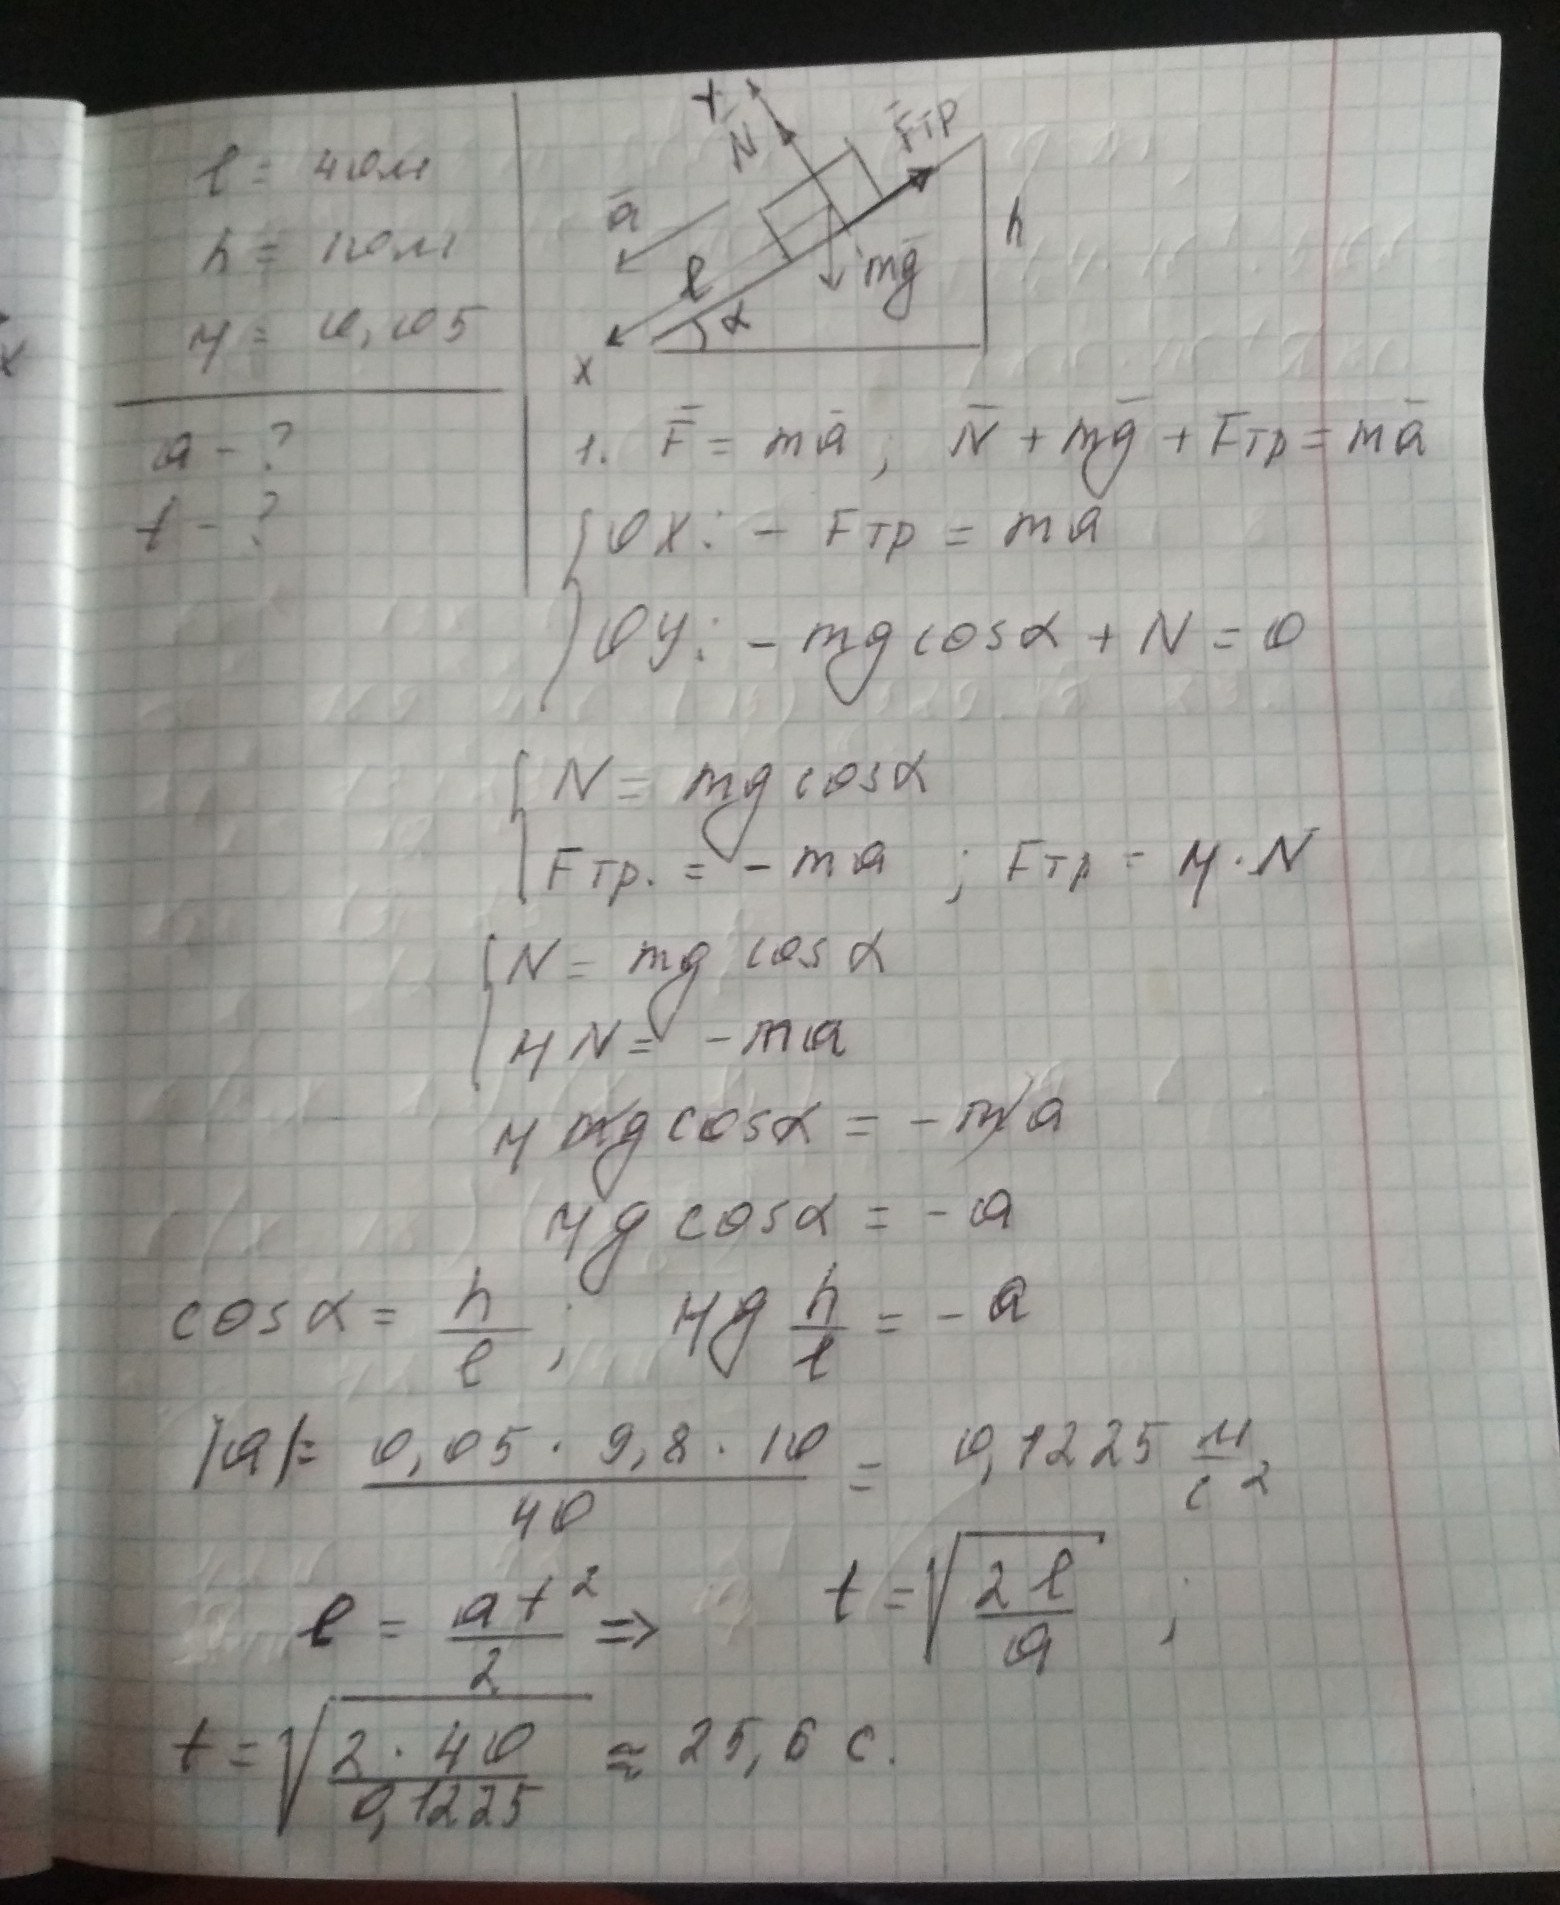 l = 40м
h = 10м
μ = 0,05
a - ?
t - ?
Y
N̄
F̄тр
ā
l
mḡ
h
α
X
1. F̄ = mā ; N̄ + mḡ + F̄тр = mā
OX: - Fтр = ma
OY: - mg cosα + N = 0
N = mg cosα
Fтр. = - ma ; Fтр = μ · N
N = mg cosα
μN = - ma
μ mg cosα = - ma
μg cosα = - a
cosα = h/l ; μg h/l = - a
|a| = 0,05 · 9,8 · 10 / 40 = 0,1225 м/с²
l = at²/2 ⇒ t = √(2l/a) ;
t = √(2 · 40 / 0,1225) ≈ 25,6 с.